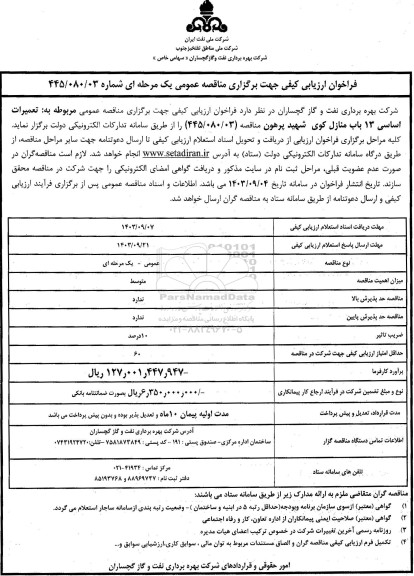 شرکت ملی نفت ایران
شرکت ملی مناطق نفتخیز جنوب
شرکت بهره برداری نفت و گاز گچساران (سهامی خاص)
فراخوان ارزیابی کیفی جهت برگزاری مناقصه عمومی یک مرحله ای شماره ۴۴۵/۰۸۰/۰۳
شرکت بهره برداری نفت و گاز گچساران در نظر دارد فراخوان ارزیابی کیفی جهت برگزاری مناقصه عمومی مربوطه به: تعمیرات
اساسی ۱۳ باب منازل کوی شهید پرهون مناقصه (۴۴۵/۰۸۰/۰۳) را از طریق سامانه تدارکات الکترونیکی دولت برگزار نماید.
کلیه مراحل برگزاری فراخوان ارزیابی از دریافت و تحویل اسناد استعلام ارزیابی کیفی تا ارسال دعوتنامه جهت سایر مراحل مناقصه، از
طریق درگاه سامانه تدارکات الکترونیکی دولت (ستاد) به آدرس www.setadiran.ir انجام خواهد شد. لازم است مناقصه‌گران در
صورت عدم عضویت قبلی، مراحل ثبت نام در سایت مذکور و دریافت گواهی امضای الکترونیکی را جهت شرکت در مناقصه محقق
سازند. تاریخ انتشار فراخوان در سامانه تاریخ ۱۴۰۳/۰۹/۰۴ می باشد. اطلاعات و اسناد مناقصه عمومی پس از برگزاری فرآیند ارزیابی
کیفی و ارسال دعوتنامه از طریق سامانه ستاد به مناقصه گران ارسال خواهد شد.
مهلت دریافت اسناد استعلام ارزیابی کیفی ۱۴۰۳/۰۹/۰۷
مهلت ارسال پاسخ استعلام ارزیابی کیفی ۱۴۰۳/۰۹/۲۱
نوع مناقصه عمومی - یک مرحله ای
میزان اهمیت مناقصه متوسط
مناقصه حد پذیرش بالا ندارد
مناقصه حد پذیرش پایین ندارد
ضریب تاثیر ۱۰درصد
حداقل امتیاز ارزیابی کیفی جهت شرکت در مناقصه ۶۰
برآورد کارفرما ۱۲۷,۰۰۱,۴۴۷,۹۴۷- ریال
نوع و مبلغ تضمین شرکت در فرآیند ارجاع کار پیمانکاری ۶,۳۵۰,۰۰۰,۰۰۰/- ریال بصورت ضمانتنامه بانکی
مدت قرارداد، تعدیل و پیش پرداخت مدت اولیه پیمان ۱۰ماه و تعدیل پذیر بوده و بدون پیش پرداخت می باشد
اطلاعات تماس دستگاه مناقصه گزار آدرس شرکت بهره برداری نفت و گاز گچساران
ساختمان اداره مرکزی- صندوق پستی : ۱۹۱ - کد پستی : ۷۵۸۱۸۷۳۸۴۹ -تلفن: ۰۷۴۳۱۹۲۴۷۲۰
تلفن های سامانه ستاد مرکز تماس : ۴۱۹۳۴-۰۲۱
دفتر ثبت نام : ۸۸۹۶۹۷۳۷ و ۸۵۱۹۳۷۶۸
مناقصه گران متقاضی ملزم به ارائه مدارک زیر از طریق سامانه ستاد می باشند:
۱) گواهی (معتبر) ازسوی سازمان برنامه وبودجه(حداقل رتبه ۵ در ابنیه و ساختمان) - وضعیت رتبه بندی ازسامانه ساجار استعلام می گردد.
۲) گواهی (معتبر) صلاحیت ایمنی پیمانکاران از اداره تعاون، کار و رفاه اجتماعی
۳) روزنامه رسمی آخرین تغییرات شرکت در خصوص ترکیب اعضای هیات مدیره
۴) تکمیل فرم ارزیابی کیفی مناقصه گران و الصاق مستندات مربوط به توان مالی ، سوابق کاری،ارزشیابی سوابق و...
امور حقوقی و قراردادهای شرکت بهره برداری نفت و گاز گچساران
ParsNamadData